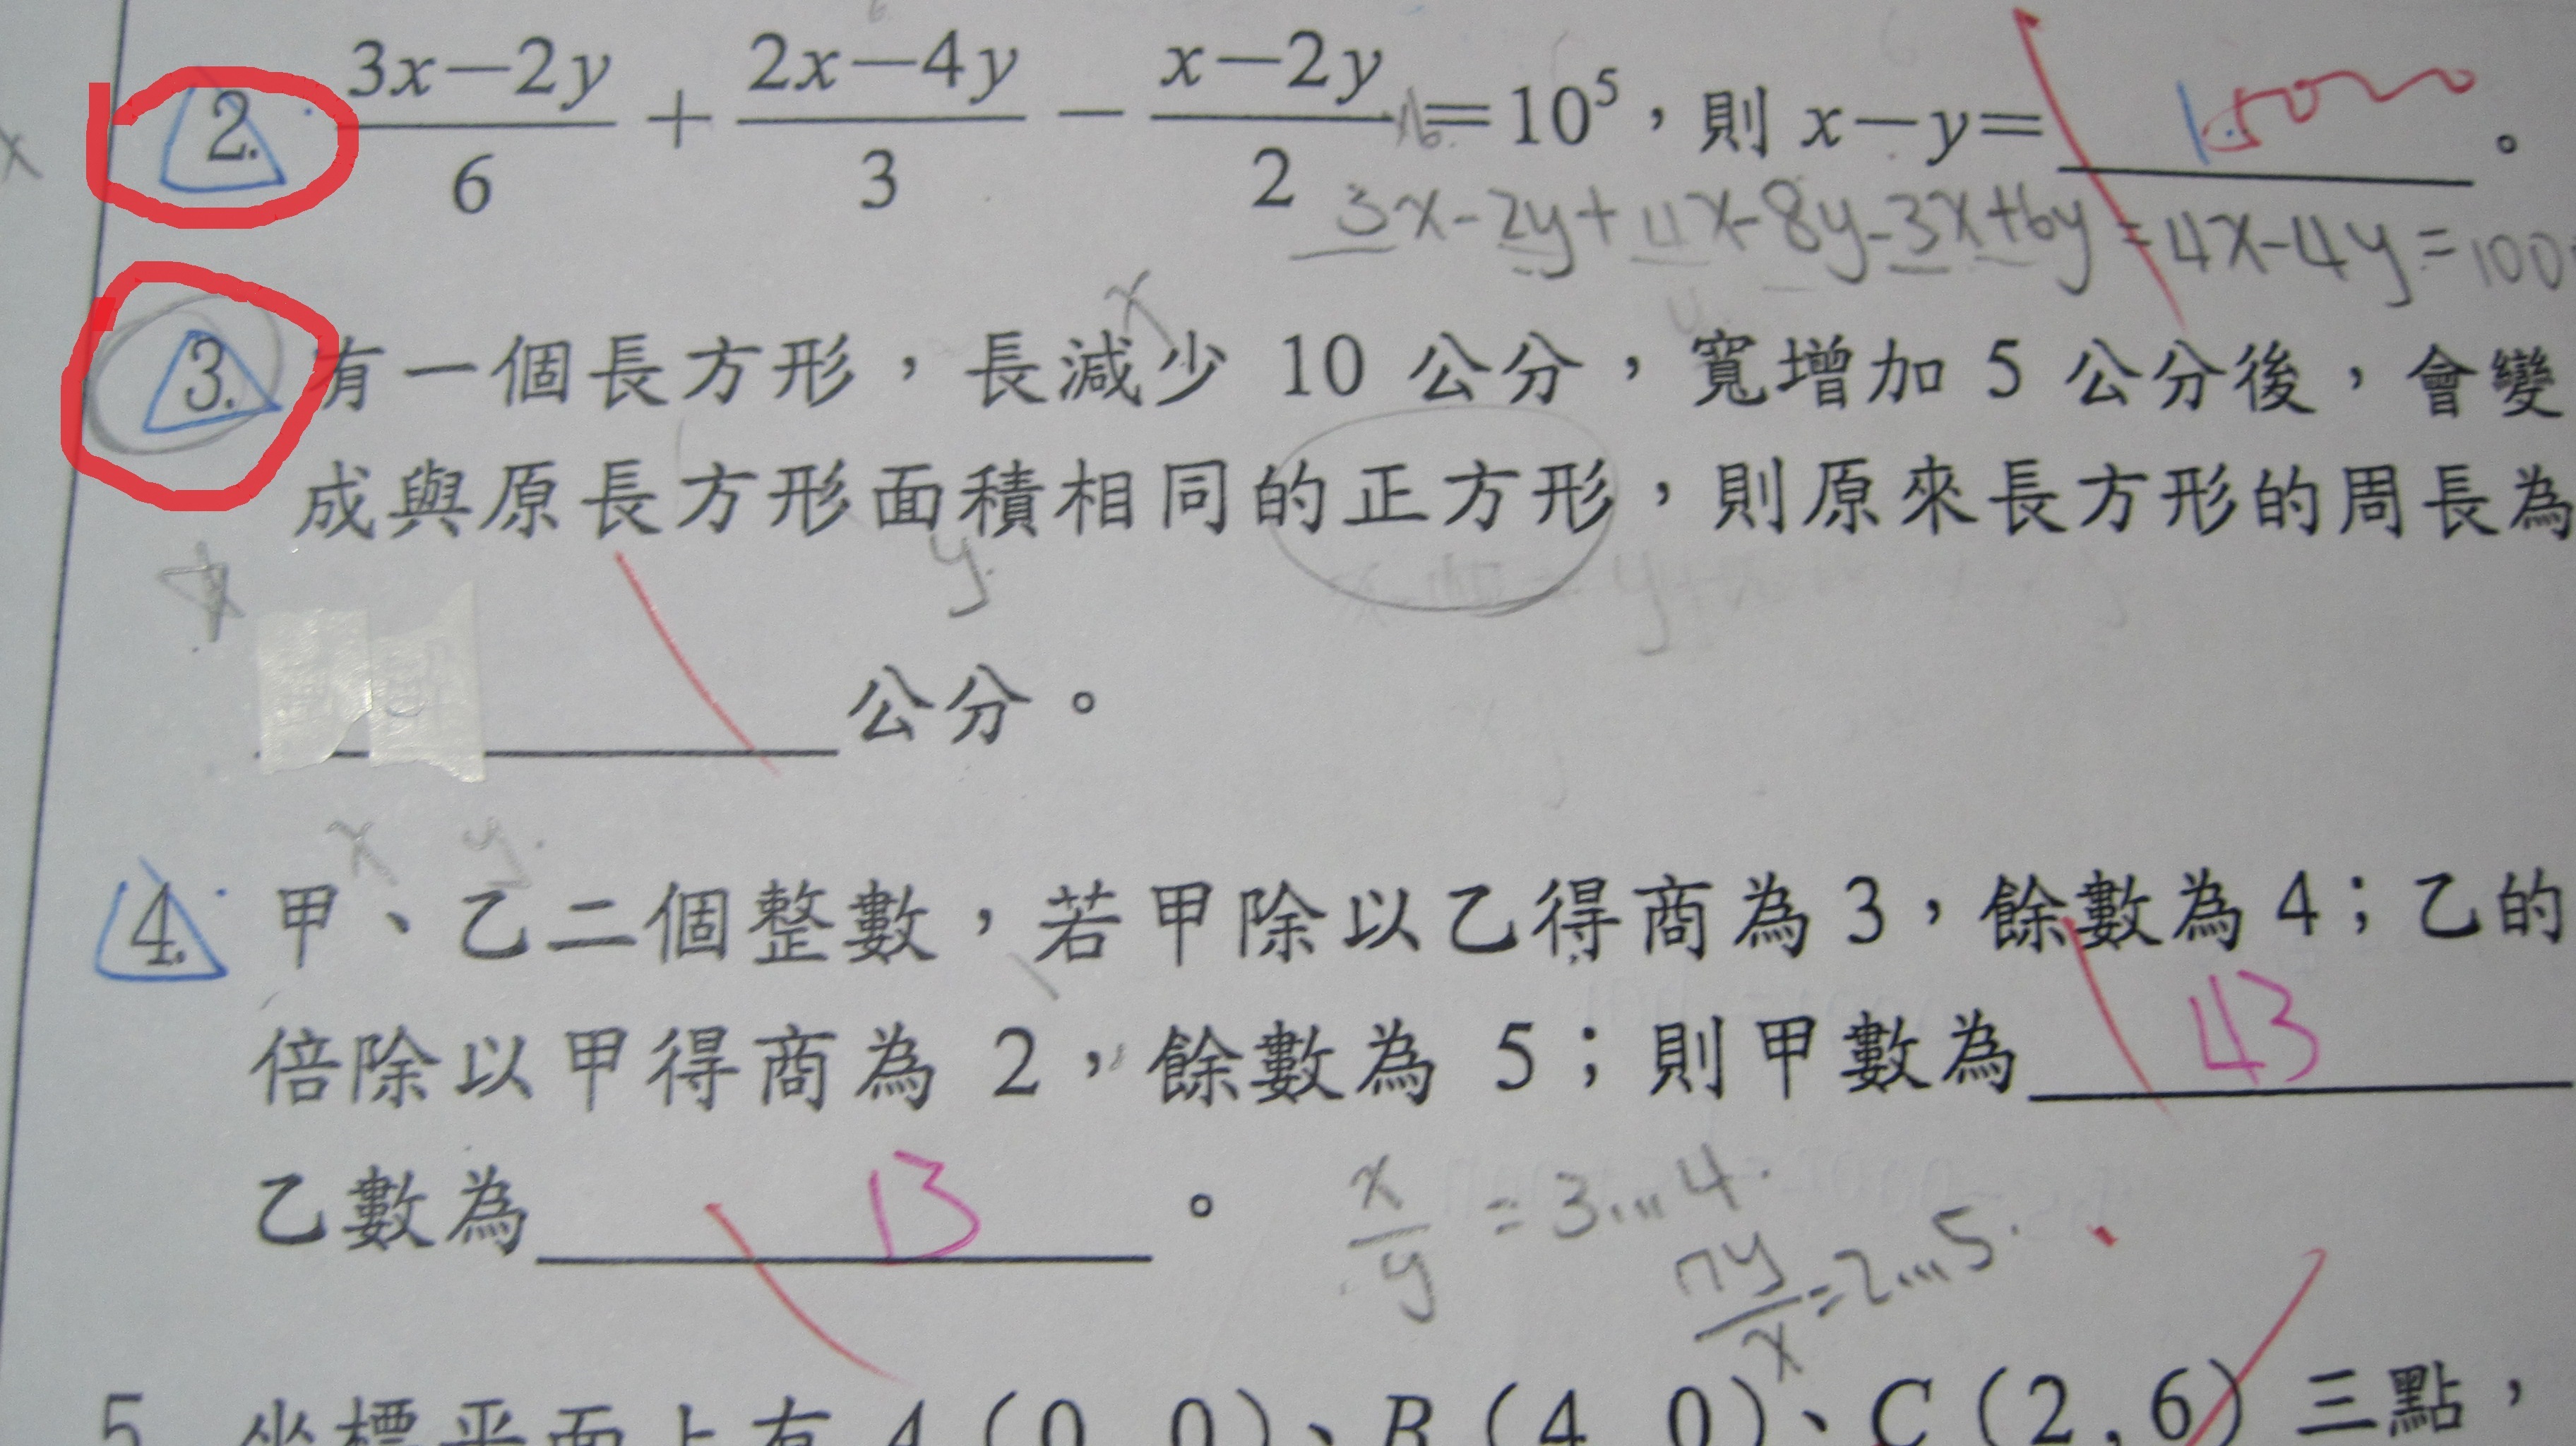 2. (3x-2y)/6 + (2x-4y)/3 - (x-2y)/2 = 10⁵，則 x-y= 。
3x-2y+4x-8y-3x+6y=4x-4y=100
x
3. 有一個長方形，長減少 10 公分，寬增加 5 公分後，會變
成與原長方形面積相同的正方形，則原來長方形的周長為
y
公分。
x y
4. 甲、乙二個整數，若甲除以乙得商為 3，餘數為 4；乙的
倍除以甲得商為 2，餘數為 5；則甲數為 43
乙數為 13 。 x/y = 3...4
7y/x = 2...5
5. 坐標平面上有 A(0, 0)、B(4, 0)、C(2, 6) 三點，